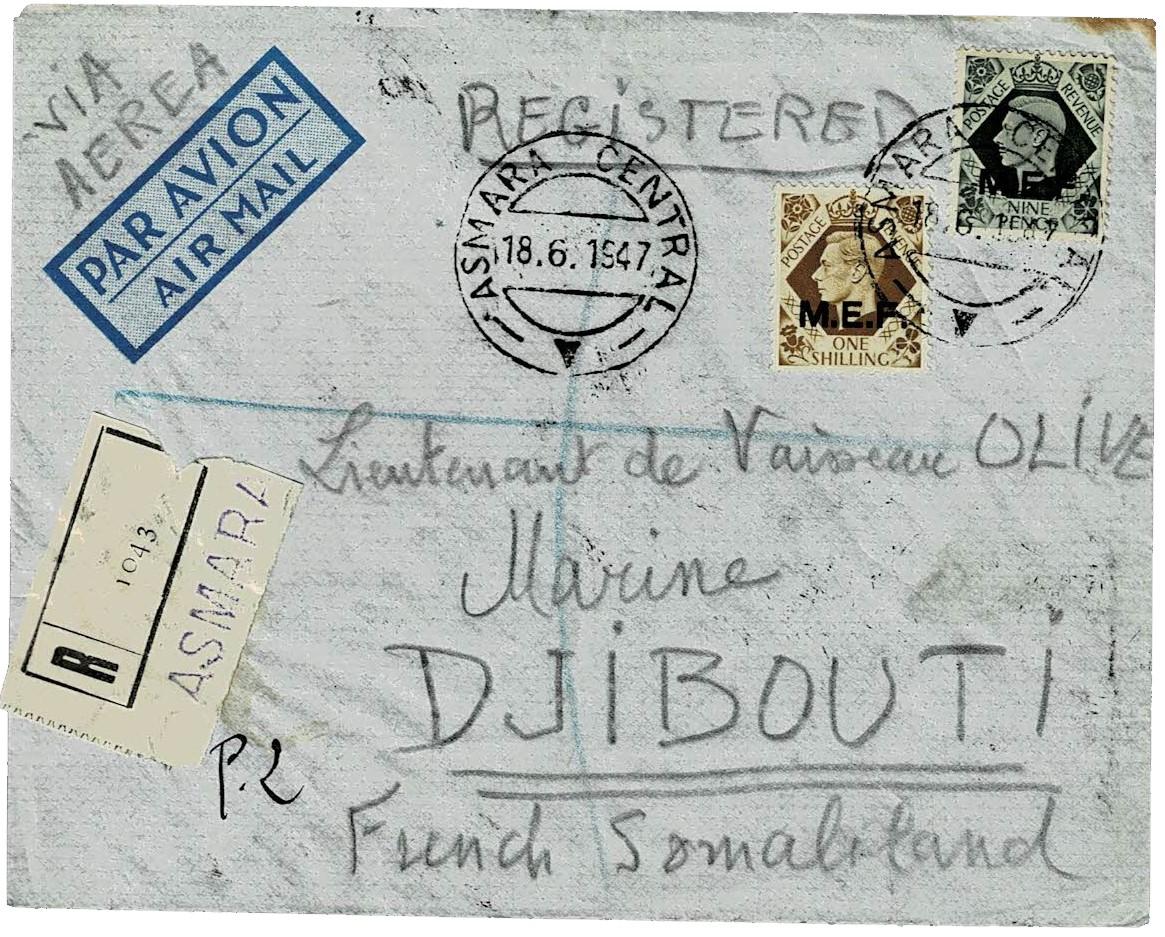 VIA
AEREA
PAR AVION
AIR MAIL
REGISTERED
ASMARA CENTRAL
18.6.1947
POSTAGE REVENUE
M.E.F.
ONE
SHILLING
POSTAGE REVENUE
M.E.F.
NINE
PENCE
ASMARA CENTRAL
18.6.1947
Lieutenant de Vaisseau OLIVE
Marine
DJIBOUTI
French Somaliland
R
1043
ASMARA
P.L